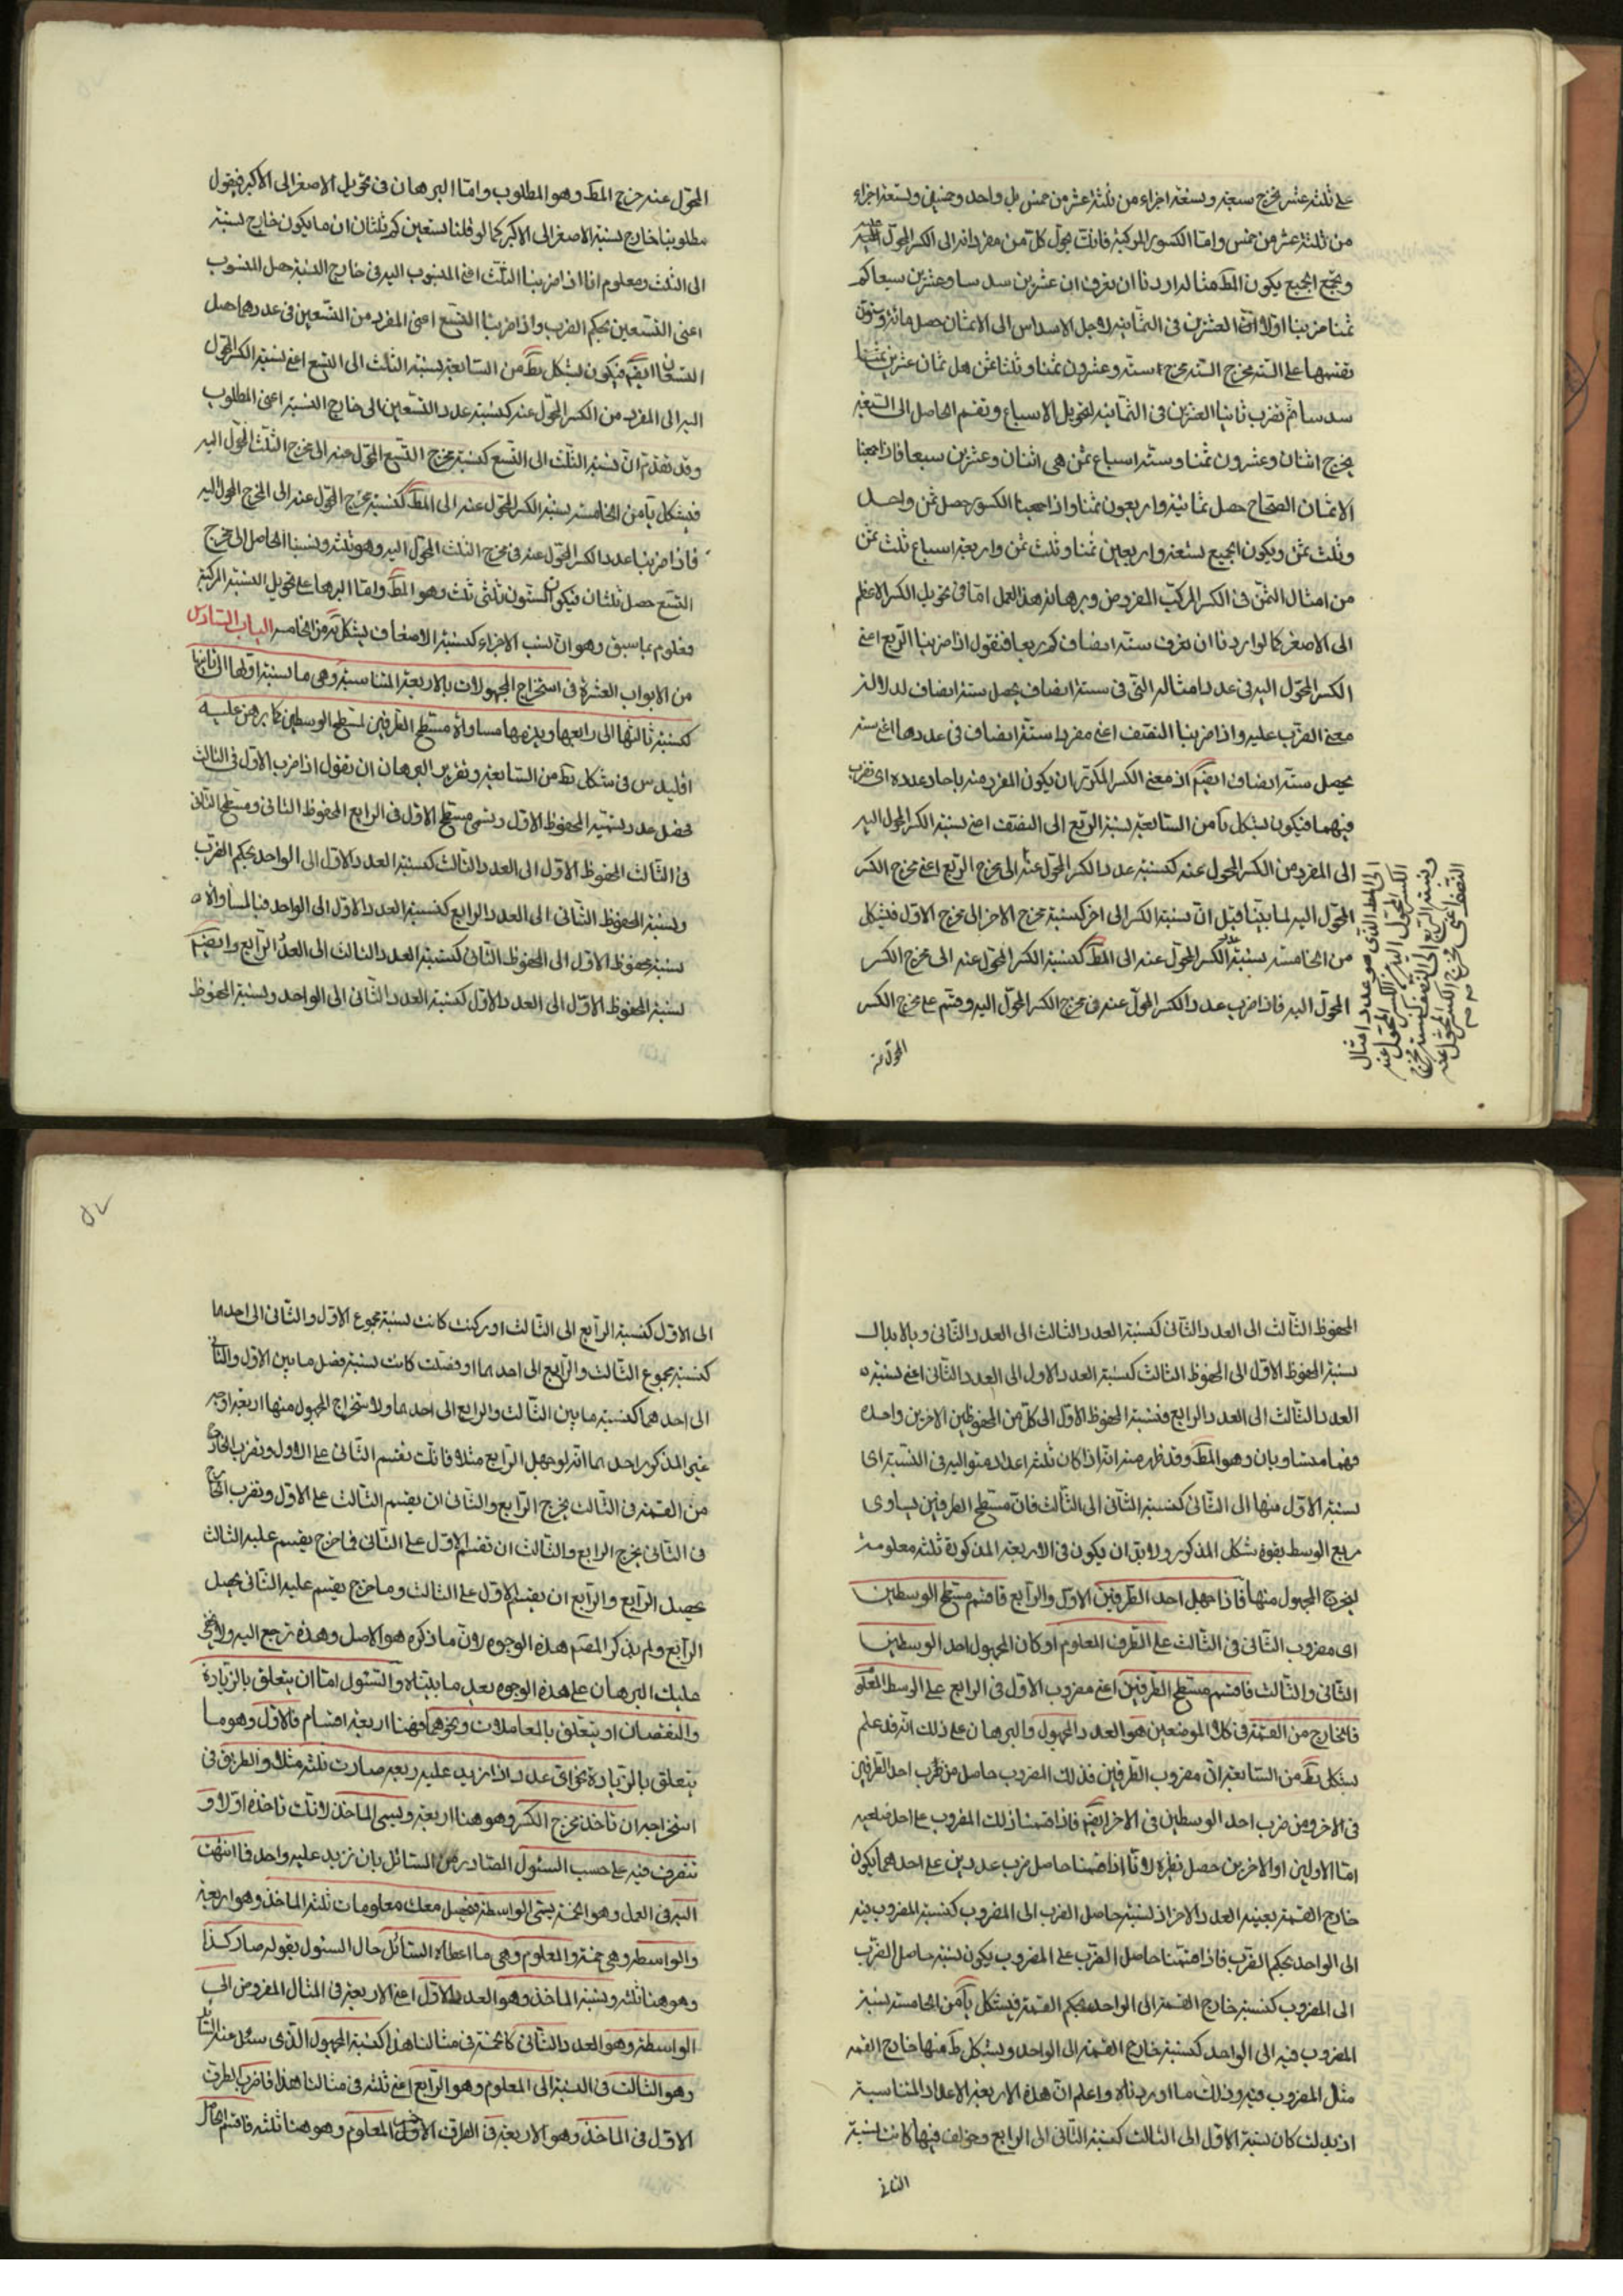 على ثلثة عشر يخرج سبعة وتسعة اجزاء من ثلثة عشر من خمس بل واحد وخمسين وتسعة اجزاء
من ثلثة عشر من خمس واما الكسور المركبة فانك تحول كلا من مفرداته الى الكسر المحول اليه
وتجمع الجميع يكون المط مثاله اردنا ان نعرف ان عشرين سدسا وعشرين سبعا كم
ثمنا ضربنا اولا العشرين فى الثمانية لاجل الاسداس الى الاثمان حصل مائة وستون
نقسمها على الستة مخرج السدس يخرج ستة وعشرون ثمنا وثلثا ثمن هل ثمان عشرين ثمنا
سدسا ثم نضرب ثانيا العشرين فى الثمانية لتحويل الاسباع ونقسم الحاصل الى السبعة
يخرج اثنان وعشرون ثمنا وستة اسباع ثمن هى اثنان وعشرين سبعا فاذا جمعنا
الاثمان الصحاح حصل ثمانية واربعون ثمنا واذا جمعنا الكسور حصل ثمن واحد
وثلث ثمن ويكون الجميع تسعة واربعين ثمنا وثلث ثمن واربعة اسباع ثلث ثمن
من امثال الثمن فى الكسر المركب المفروض وبرهان هذا العمل اما فى تحويل الكسر الاعظم
الى الاصغر كما لو اردنا ان نعرف ستة انصاف كم ربعا فنقول اذا ضربنا الربع اعنى
الكسر المحول اليه فى عدد امثاله التى فى ستة انصاف يحصل ستة انصاف لدلالة
معنى الضرب عليه واذا ضربنا النصف اعنى مفرد ستة انصاف فى عددها اعنى ستة
يحصل ستة انصاف ايضم اذ معنى الكسر المكرر ان يكون المفرد منه باحاد عدده اى تضرب
فيهما فيكون بشكل يا من السابعة نسبة الربع الى النصف اعنى نسبة الكسر المحول اليه
الى المفرد من الكسر المحول عنه كنسبة عدد الكسر المحول عنه الى مخرج الربع اعنى مخرج الكسر
المحول اليه لما بينا قبل ان نسبة الكسر الى اخر كنسبة مخرج الاخر الى مخرج الاول فبشكل
من الخامسة نسبة عدد الكسر المحول عنه الى المط كنسبة الكسر المحول عنه الى مخرج الكسر
المحول اليه فاذا ضرب عدد الكسر المحول عنه فى مخرج الكسر المحول اليه وقسم على مخرج الكسر
المحول عنه
الى المط الذى هو عدد امثال
الكسر المحول اليه فى الكسر المحول عنه
ونسبة الربع الى النصف كنسبة مخرج
النصف اعنى مخرج الكسر المحول عنه
المحول عنه خرج المط وهو المطلوب واما البرهان فى تحويل الاصغر الى الاكبر فيقول
مطلوبنا خارج نسبة الاصغر الى الاكبر كما لو قلنا تسعين كم ثلثا ان ما يكون خارج نسبة
الى الثلث ومعلوم انا اذا ضربنا الثلث اعنى المنسوب اليه فى خارج النسبة حصل المنسوب
اعنى التسعين بحكم الضرب واذا ضربنا التسع اعنى المفرد من التسعين فى عددهما حصل
التسعان ايضم فيكون بشكل يط من السابعة نسبة الثلث الى التسع اعنى نسبة الكسر المحول
اليه الى المفرد من الكسر المحول عنه كنسبة عدد التسعين الى خارج النسبة اعنى المطلوب
وقد تقدم ان نسبة الثلث الى التسع كنسبة مخرج التسع المحول عنه الى مخرج الثلث المحول اليه
فبشكل يا من الخامسة نسبة الكسر المحول عنه الى المط كنسبة مخرج المحول عنه الى المخرج المحول اليه
فاذا ضربنا عدد الكسر المحول عنه فى مخرج الثلث المحول اليه وهو ثلثة ونسبنا الحاصل الى مخرج
التسع حصل ثلثان فيكون الستون ثلثى ثلث وهو المط واما البرهان على تحويل النسبة المركبة
فعلوم بما سبق وهو ان نسب الاجزاء كنسبة الاضعاف بشكل يه من الخامسة الباب السادس
من الابواب العشرة فى استخراج المجهولات بالاربعة المتناسبة وهى ما نسبة اولها الى ثانيها
كنسبة ثالثها الى رابعها ويلزمها مساواة مسطح الطرفين لمسطح الوسطين كما برهن عليه
اقليدس فى شكل يط من السابعة وتقرير البرهان ان نقول اذا ضرب الاول فى الثالث
حصل عدد نسميه المحفوظ الاول ونسمى مسطح الاول فى الرابع المحفوظ الثانى ومسطح الثانى
فى الثالث المحفوظ الاول الى العدد الثالث كنسبة العدد الاول الى الواحد بحكم الضرب
ونسبة المحفوظ الثانى الى العدد الرابع كنسبة العدد الاول الى الواحد فبالمساواة
نسبة محفوظ الاول الى المحفوظ الثانى كنسبة العدد الثالث الى العدد الرابع وايضم
نسبة المحفوظ الاول الى العدد الاول كنسبة العدد الثانى الى الواحد ونسبة المحفوظ
المحفوظ الثالث الى العدد الثانى كنسبة العدد الثالث الى العدد الثانى وبالابدال
نسبة المحفوظ الاول الى المحفوظ الثالث كنسبة العدد الاول الى العدد الثانى اعنى نسبة
العدد الثالث الى العدد الرابع فنسبة المحفوظ الاول الى كل من المحفوظين الاخرين واحدة
فهما متساويان وهو المط وقد ظهر منه انه اذا كان ثلثة اعداد متوالية فى النسبة اى
نسبة الاول منها الى الثانى كنسبة الثانى الى الثالث فان مسطح الطرفين يساوى
مربع الوسط بقوة شكل المذكور ولا بد ان يكون فى الاربعة المذكورة ثلثة معلومة
ليخرج المجهول منها فاذا جهل احد الطرفين الاول والرابع فاقسم مسطح الوسطين
اى مضروب الثانى فى الثالث على الطرف المعلوم او كان المجهول احد الوسطين
الثانى والثالث فاقسم مسطح الطرفين اعنى مضروب الاول فى الرابع على الوسط المعلوم
فالخارج من القسمة فى كلا الموضعين هو العدد المجهول والبرهان على ذلك انه قد علم
بشكل يط من السابعة ان مضروب الطرفين فذلك المضروب حاصل من ضرب احد الطرفين
فى الاخر ومن ضرب احد الوسطين فى الاخر ايضم فاذا قسمنا ذلك المضروب على احد ضلعيه
اما الاولين او الاخرين حصل نظيره لانا اذا قسمنا حاصل ضرب عددين على احدهما يكون
خارج القسمة بعينه العدد الاخر اذ نسبة حاصل الضرب الى المضروب كنسبة المضروب فيه
الى الواحد بحكم الضرب فاذا قسمنا حاصل الضرب على المضروب يكون نسبة حاصل الضرب
الى المضروب كنسبة خارج القسمة الى الواحد بحكم القسمة فبشكل يا من الخامسة نسبة
المضروب فيه الى الواحد كنسبة خارج القسمة الى الواحد وبشكل ط منها خارج القسمة
مثل المضروب فيه وذلك ما اوردناه واعلم ان هذه الاربعة الاعداد المتناسبة
اذ بدلت كان نسبة الاول الى الثالث كنسبة الثانى الى الرابع وخولف فيها كانت نسبة
الثانى
٥٧
الى الاول كنسبة الرابع الى الثالث او ركبت كانت نسبة مجموع الاول والثانى الى احدهما
كنسبة مجموع الثالث والرابع الى احدهما او فصلت كانت نسبة فضل ما بين الاول والثانى
الى احدهما كنسبة ما بين الثالث والرابع الى احدهما ولاستخراج المجهول منها اربعة اوجه
غير المذكور احدهما انه لو جهل الرابع مثلا فانك تقسم الثانى على الاول وتضرب الخارج
من القسمة فى الثالث يخرج الرابع والثانى ان يقسم الثالث على الاول وتضرب الخارج
فى الثانى يخرج الرابع والثالث ان تقسم الاول على الثانى فما خرج يقسم عليه الثالث
يحصل الرابع والرابع ان يقسم الاول على الثالث وما خرج يقسم عليه الثانى يحصل
الرابع ولم يذكر المصم هذه الوجوه لان ما ذكره هو الاصل وهذه ترجع اليه ولا يخفى
عليك البرهان على هذه الوجوه بعد ما بيناه والسئول اما ان يتعلق بالزيادة
والنقصان او يتعلق بالمعاملات ونحوهما فهنا اربعة اقسام فالاول وهو ما
يتعلق بالزيادة نحو اى عدد اذا زيد عليه ربعه صارت ثلثة مثلا والطريق فى
استخراجه ان تاخذ مخرج الكسر وهو هنا اربعة ويسمى الماخذ لانك تاخذه اولا و
تتصرف فيه على حسب السئول الصادر من السائل بان تزيد عليه واحد فما انتهت
اليه فى العمل وهو الخمسة يسمى الواسطة فيحصل معك معلومات ثلثة الماخذ وهو اربعة
والواسطة وهى خمسة والمعلوم وهى ما اعطاه السائل حال السئول بقوله صار كذا
وهو هنا ثلثة ونسبة الماخذ وهو العدد الاول اعنى الاربعة فى المثال المفروض الى
الواسطة وهو العدد الثانى كالخمسة فى مثالنا هذا كنسبة المجهول الذى سئل عنه السائل
وهو الثالث فى النسبة الى المعلوم وهو الرابع اعنى ثلثة فى مثالنا هذا فاضرب الطرف
الاول فى الماخذ وهو الاربعة فى الطرف الاول المعلوم وهو هنا ثلثة فاقسم الحاصل